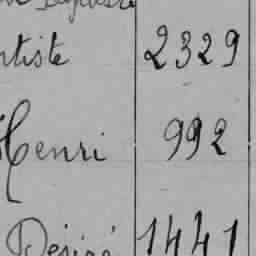 ntiste 2329
Henri 992
Désiré 1441